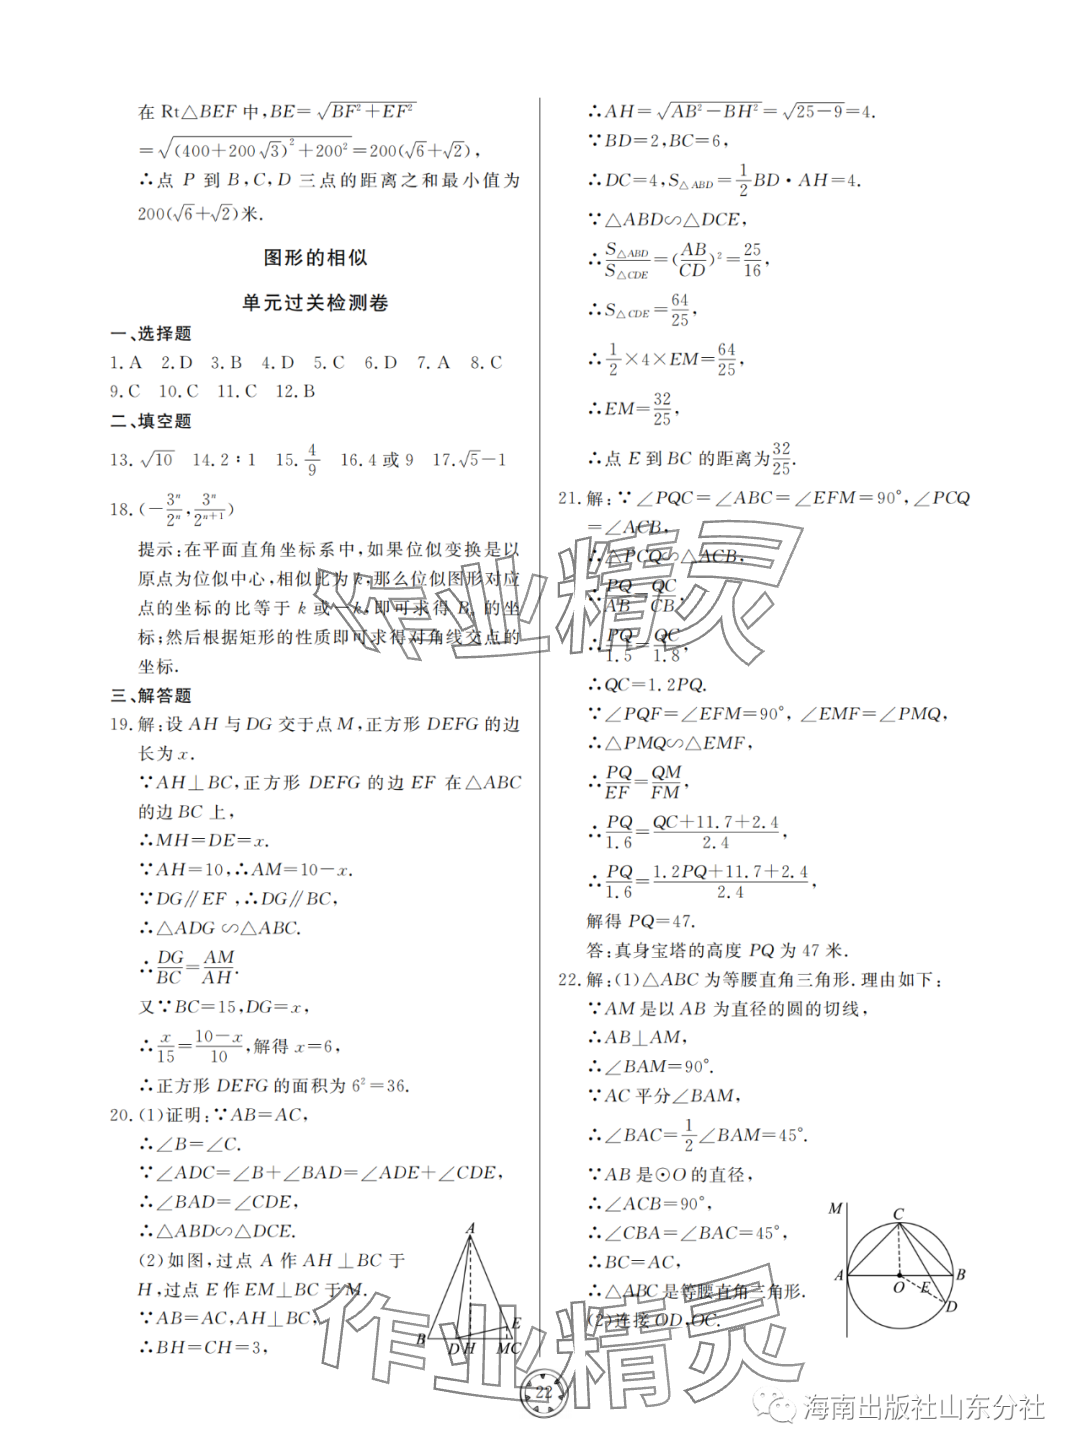 在 Rt△BEF 中,BE=√(BF²+EF²)
=√((400+200√3)²+200²)=200(√6+√2),
∴点 P 到 B,C,D 三点的距离之和最小值为
200(√6+√2)米.
图形的相似
单元过关检测卷
一、选择题
1.A 2.D 3.B 4.D 5.C 6.D 7.A 8.C
9.C 10.C 11.C 12.B
二、填空题
13.√10 14.2∶1 15.4/9 16.4 或 9 17.√5-1
18.(-3ⁿ/2ⁿ,3ⁿ/2ⁿ⁺¹)
提示:在平面直角坐标系中,如果位似变换是以
原点为位似中心,相似比为 k,那么位似图形对应
点的坐标的比等于 k 或-k,即可求得 Bₙ 的坐
标;然后根据矩形的性质即可求得对角线交点的
坐标.
三、解答题
19.解:设 AH 与 DG 交于点 M,正方形 DEFG 的边
长为 x.
∵AH⊥BC,正方形 DEFG 的边 EF 在△ABC
的边 BC 上,
∴MH=DE=x.
∵AH=10,∴AM=10-x.
∵DG∥EF,∴DG∥BC,
∴△ADG∽△ABC.
∴DG/BC=AM/AH.
又∵BC=15,DG=x,
∴x/15=(10-x)/10,解得 x=6,
∴正方形 DEFG 的面积为 6²=36.
20.(1)证明:∵AB=AC,
∴∠B=∠C.
∵∠ADC=∠B+∠BAD=∠ADE+∠CDE,
∴∠BAD=∠CDE,
∴△ABD∽△DCE.
(2)如图,过点 A 作 AH⊥BC 于
H,过点 E 作 EM⊥BC 于 M.
∵AB=AC,AH⊥BC,
∴BH=CH=3,
A
B
D
H
M
C
E
∴AH=√(AB²-BH²)=√(25-9)=4.
∵BD=2,BC=6,
∴DC=4,S△ABD=1/2BD·AH=4.
∵△ABD∽△DCE,
∴S△ABD/S△CDE=(AB/CD)²=25/16,
∴S△CDE=64/25,
∴1/2×4×EM=64/25,
∴EM=32/25,
∴点 E 到 BC 的距离为32/25.
21.解:∵∠PQC=∠ABC=∠EFM=90°,∠PCQ
=∠ACB,
∴△PCQ∽△ACB,
∴PQ/AB=QC/CB,
∴PQ/1.5=QC/1.8,
∴QC=1.2PQ.
∵∠PQF=∠EFM=90°,∠EMF=∠PMQ,
∴△PMQ∽△EMF,
∴PQ/EF=QM/FM,
∴PQ/1.6=(QC+11.7+2.4)/2.4,
∴PQ/1.6=(1.2PQ+11.7+2.4)/2.4,
解得 PQ=47.
答:真身宝塔的高度 PQ 为 47 米.
22.解:(1)△ABC 为等腰直角三角形.理由如下:
∵AM 是以 AB 为直径的圆的切线,
∴AB⊥AM,
∴∠BAM=90°.
∵AC 平分∠BAM,
∴∠BAC=1/2∠BAM=45°.
∵AB 是⊙O 的直径,
∴∠ACB=90°,
∴∠CBA=∠BAC=45°,
∴BC=AC,
∴△ABC 是等腰直角三角形.
(2)连接 OD,OC.
M
C
A
O
E
B
D
作业精灵
作业精灵
22
海南出版社山东分社